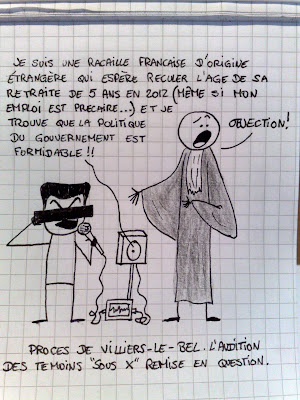 JE SUIS UNE RACAILLE FRANCAISE D'ORIGINE
ÉTRANGÈRE QUI ESPÈRE RECULER L'AGE DE SA
RETRAITE DE 5 ANS EN 2012 (MÊME SI MON
EMPLOI EST PRECAIRE...) ET JE
TROUVE QUE LA POLITIQUE
DU GOUVERNEMENT EST
FORMIDABLE!!
OBJECTION!
PROCES DE VILLIERS-LE-BEL. L'AUDITION
DES TEMOINS "SOUS X" REMISE EN QUESTION.